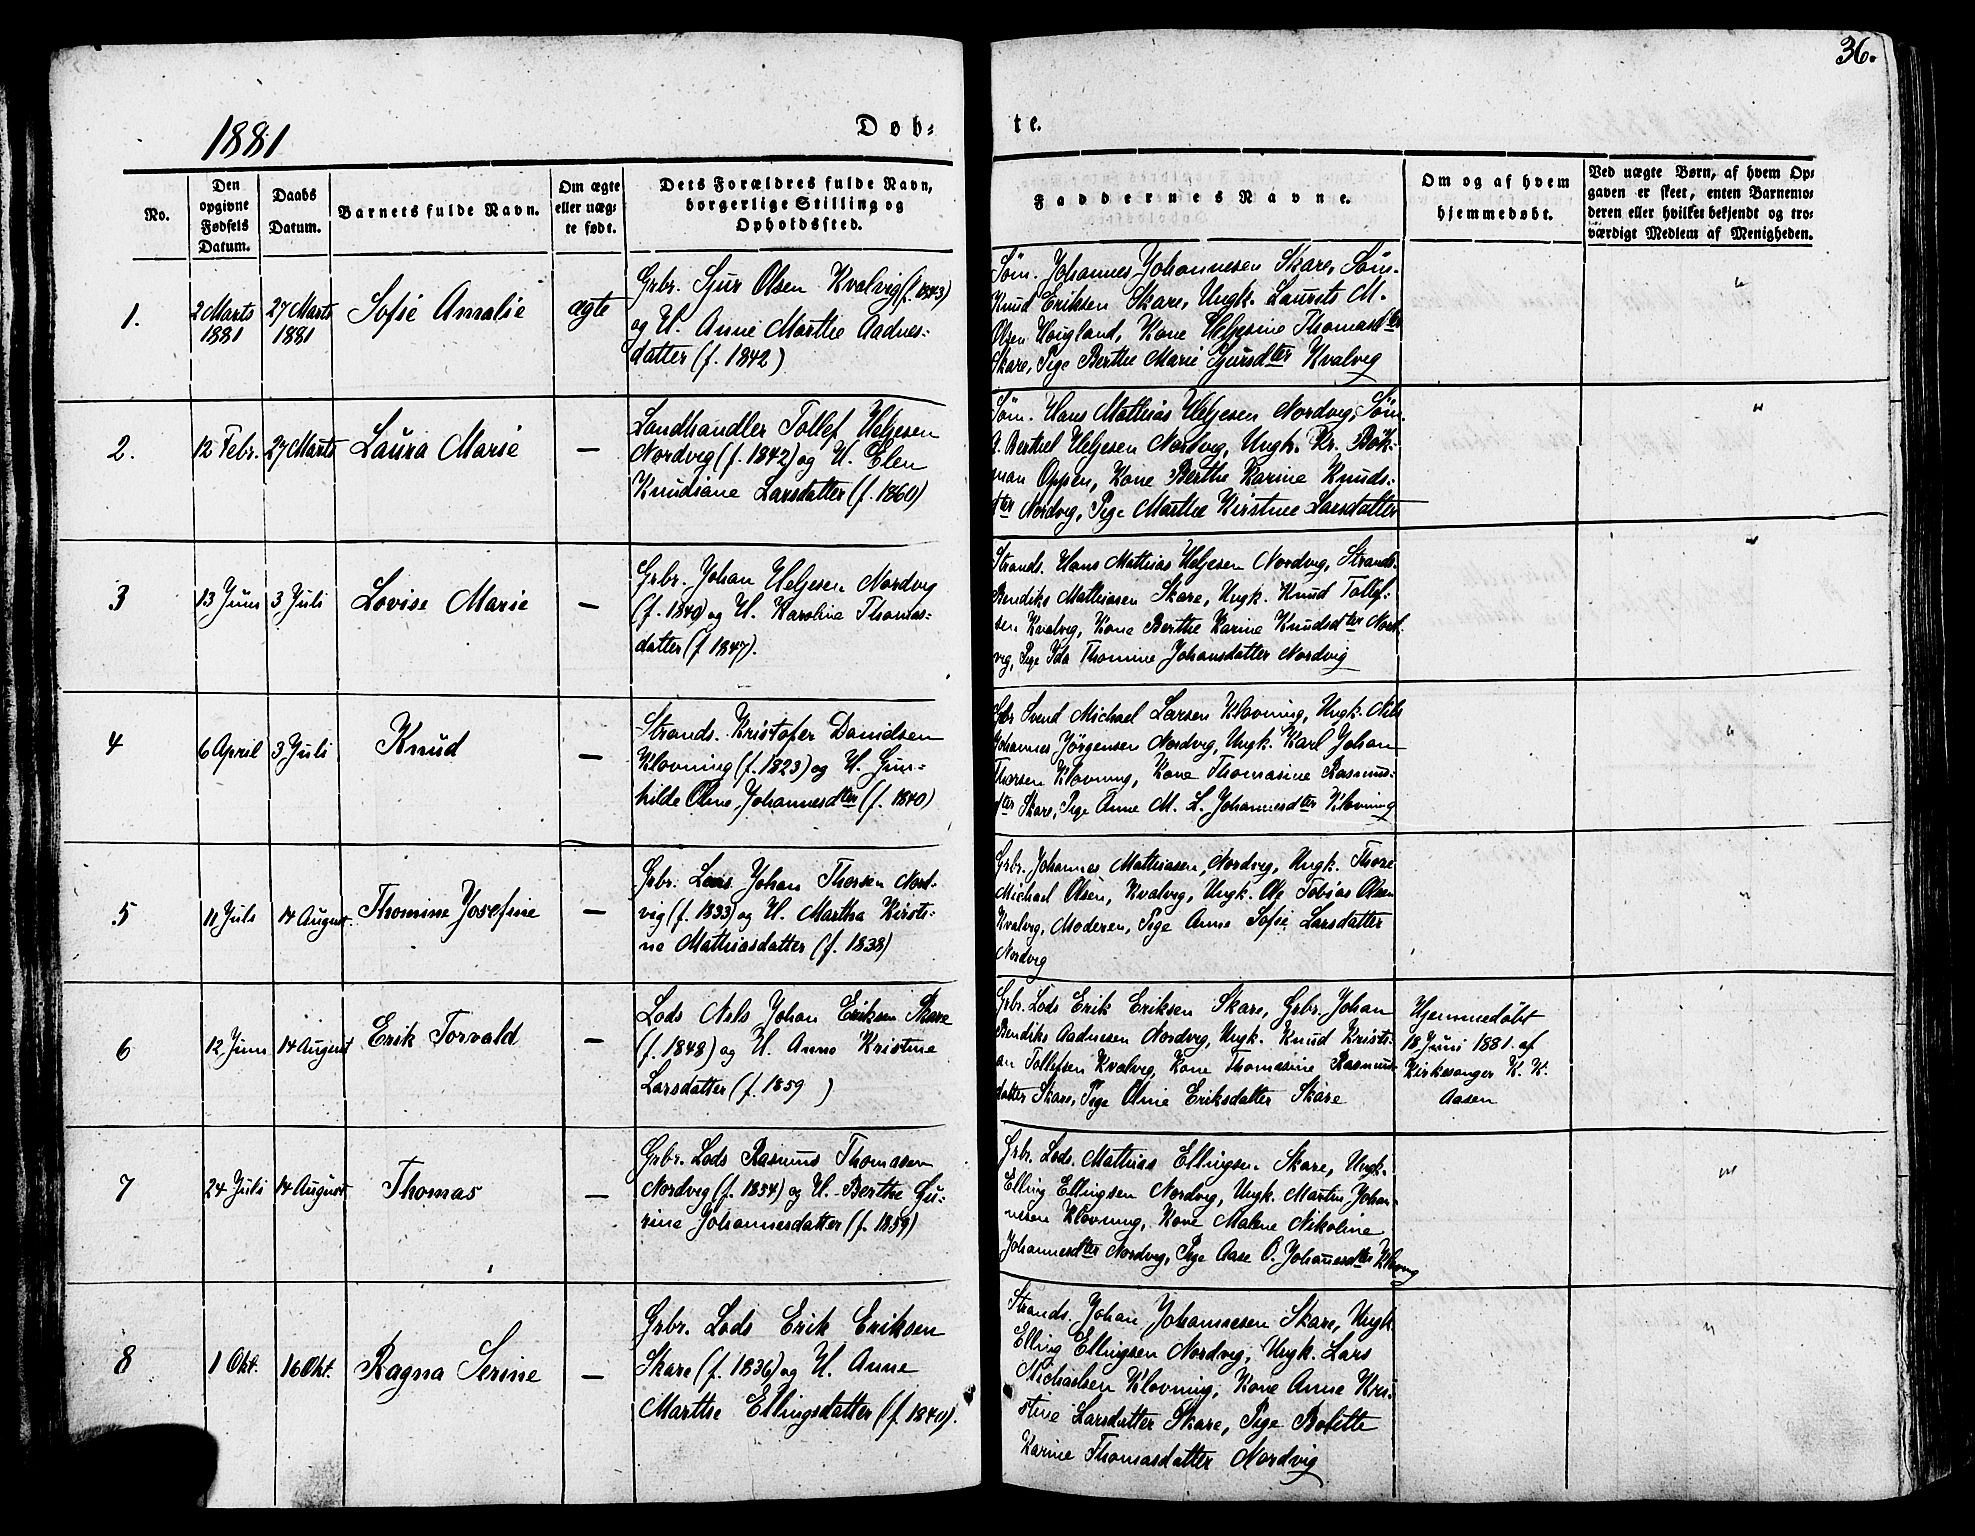 36.
1881
Døb=
te.
No.
Den
opgivne
Fødsels
Datum.
Daabs
Datum.
Barnets fulde Navn.
Om ægte
eller uæg=
te født.
Dets Forældres fulde Navn,
borgerlige Stilling og
Opholdssted.
Faddernes Navne.
Om og af hvem
hjemmedøbt.
Ved uægte Børn, af hvem Op=
gaven er skeet, enten Barnemo=
deren eller hvilket bekjendt og tro=
værdigt Medlem af Menigheden.
1.
2 Marts
1881
27 Marts
1881
Sofie Amalie
ægte
Grbr. Sjur Olsen Kvalvig (f. 1843)
og H. Anne Marthe Aadnes=
datter (f. 1842)
Søm. Johannes Johannesen Skare, Søm.
Knud Eriksen Skare, Ungk. Laurits M.
Olsen Hoigland, Kone Helgesine Thomasdter
Skare, Pige Berthe Marie Sjursdter Kvalvig
"
2.
12 Febr.
27 Marts
Laura Marie
—
Landhandler Tollef Helgesen
Nordvig (f. 1842) og H. Elen
Knudiane Larsdatter (f. 1860)
Søm. Hans Mathias Helgesen Nordvig, Søm.
A. Berthel Helgesen Nordvig, Ungk. Kr. Bök-
man Oppen, Kone Berthe Karine Knuds=
dter Nordvig, Pige Marthe Kirstine Larsdatter
"
3
13 Juni
3 Juli
Lovise Marie
—
Grbr. Johan Helgesen Nordvig
(f. 1840) og H. Karoline Thomas=
datter (f. 1847).
Strands. Hans Mathias Helgesen Nordvig, Strands.
Bendiks Mathiasen Skare, Ungk. Knud Tollef-
sen Kvalvig, Kone Berthe Karine Knudsdter Nord-
vig, Pige Ida Thomine Johansdatter Nordvig
"
4
6 April
3 Juli
Knud
—
Strands. Kristofer Danielsen
Klovning (f. 1823) og H. Gun=
hilde Oline Johannesdter (f. 1840)
Gbr Svend Michael Larsen Klovning, Ungk. Nils
Johannes Jörgensen Nordvig, Ungk. Karl Johan
Thorsen Klovning, Kone Thomasine Rasmus-
dter Skare, Pige Anne M. L. Johannesdter Klovning
"
5
11 Juli
14 August.
Thomine Josefine
—
Grbr. Lars Johan Thorsen Nord-
vig (f. 1833) og H. Martha Kirsti-
ne Mathiasdatter (f. 1838)
Grbr. Johannes Mathiasen, Nordvig, Ungk. Thore
Michael Olsen, Kvalvig, Ungk. Ole Tobias Olsen
Kvalvig, Moderen, Pige Anne Sofie Larsdatter
Nordvig
"
6
12 Juni
14 August
Erik Torvald
—
Lods Nels Johan Eriksen Skare
(f. 1848) og H. Anne Kristine
Larsdatter (f. 1859 )
Grbr. Lods Erik Eriksen Skare, Grbr. Johan
Bendiks Aadnesen Nordvig, Ungk. Knud Kristi-
an Tollefsen Kvalvig, Kone Thomasine Rasmus-
datter Skare, Pige Oline Eriksdatter Skare
Hjemmedöbt
18 Juni 1881. af
Kirkesanger K. K.
Aasen
7
24 Juli
14 August
Thomas
—
Grbr. Lods Rasmus Thomasen
Nordvig (f. 1854) og H. Berthe Gu-
rine Johannesdatter (f. 1859)
Grbr. Lods. Mathias Ellingsen Skare, Ungk.
Elling Ellingsen Nordvig, Ungk. Martin Johan-
nesen Klovning, Kone Malene Nikoline
Johannesdter Nordvig, Pige Aase O. Johanesdter Klovng
"
8
1 Okt.
16 Okt.
Ragna Serine
—
Grbr. Lods Erik Eriksen
Skare (f. 1836) og H. Anne
Marthe Ellingsdatter (f. 1840).
Strands. Johan Johannesen Skare, Ungk
Elling Ellingsen Nordvig, Ungk. Lars
Michaelsen Klovning, Kone Anne Kri-
stine Larsdatter Skare, Pige Bolette
Karine Thomasdatter Nordvig
"